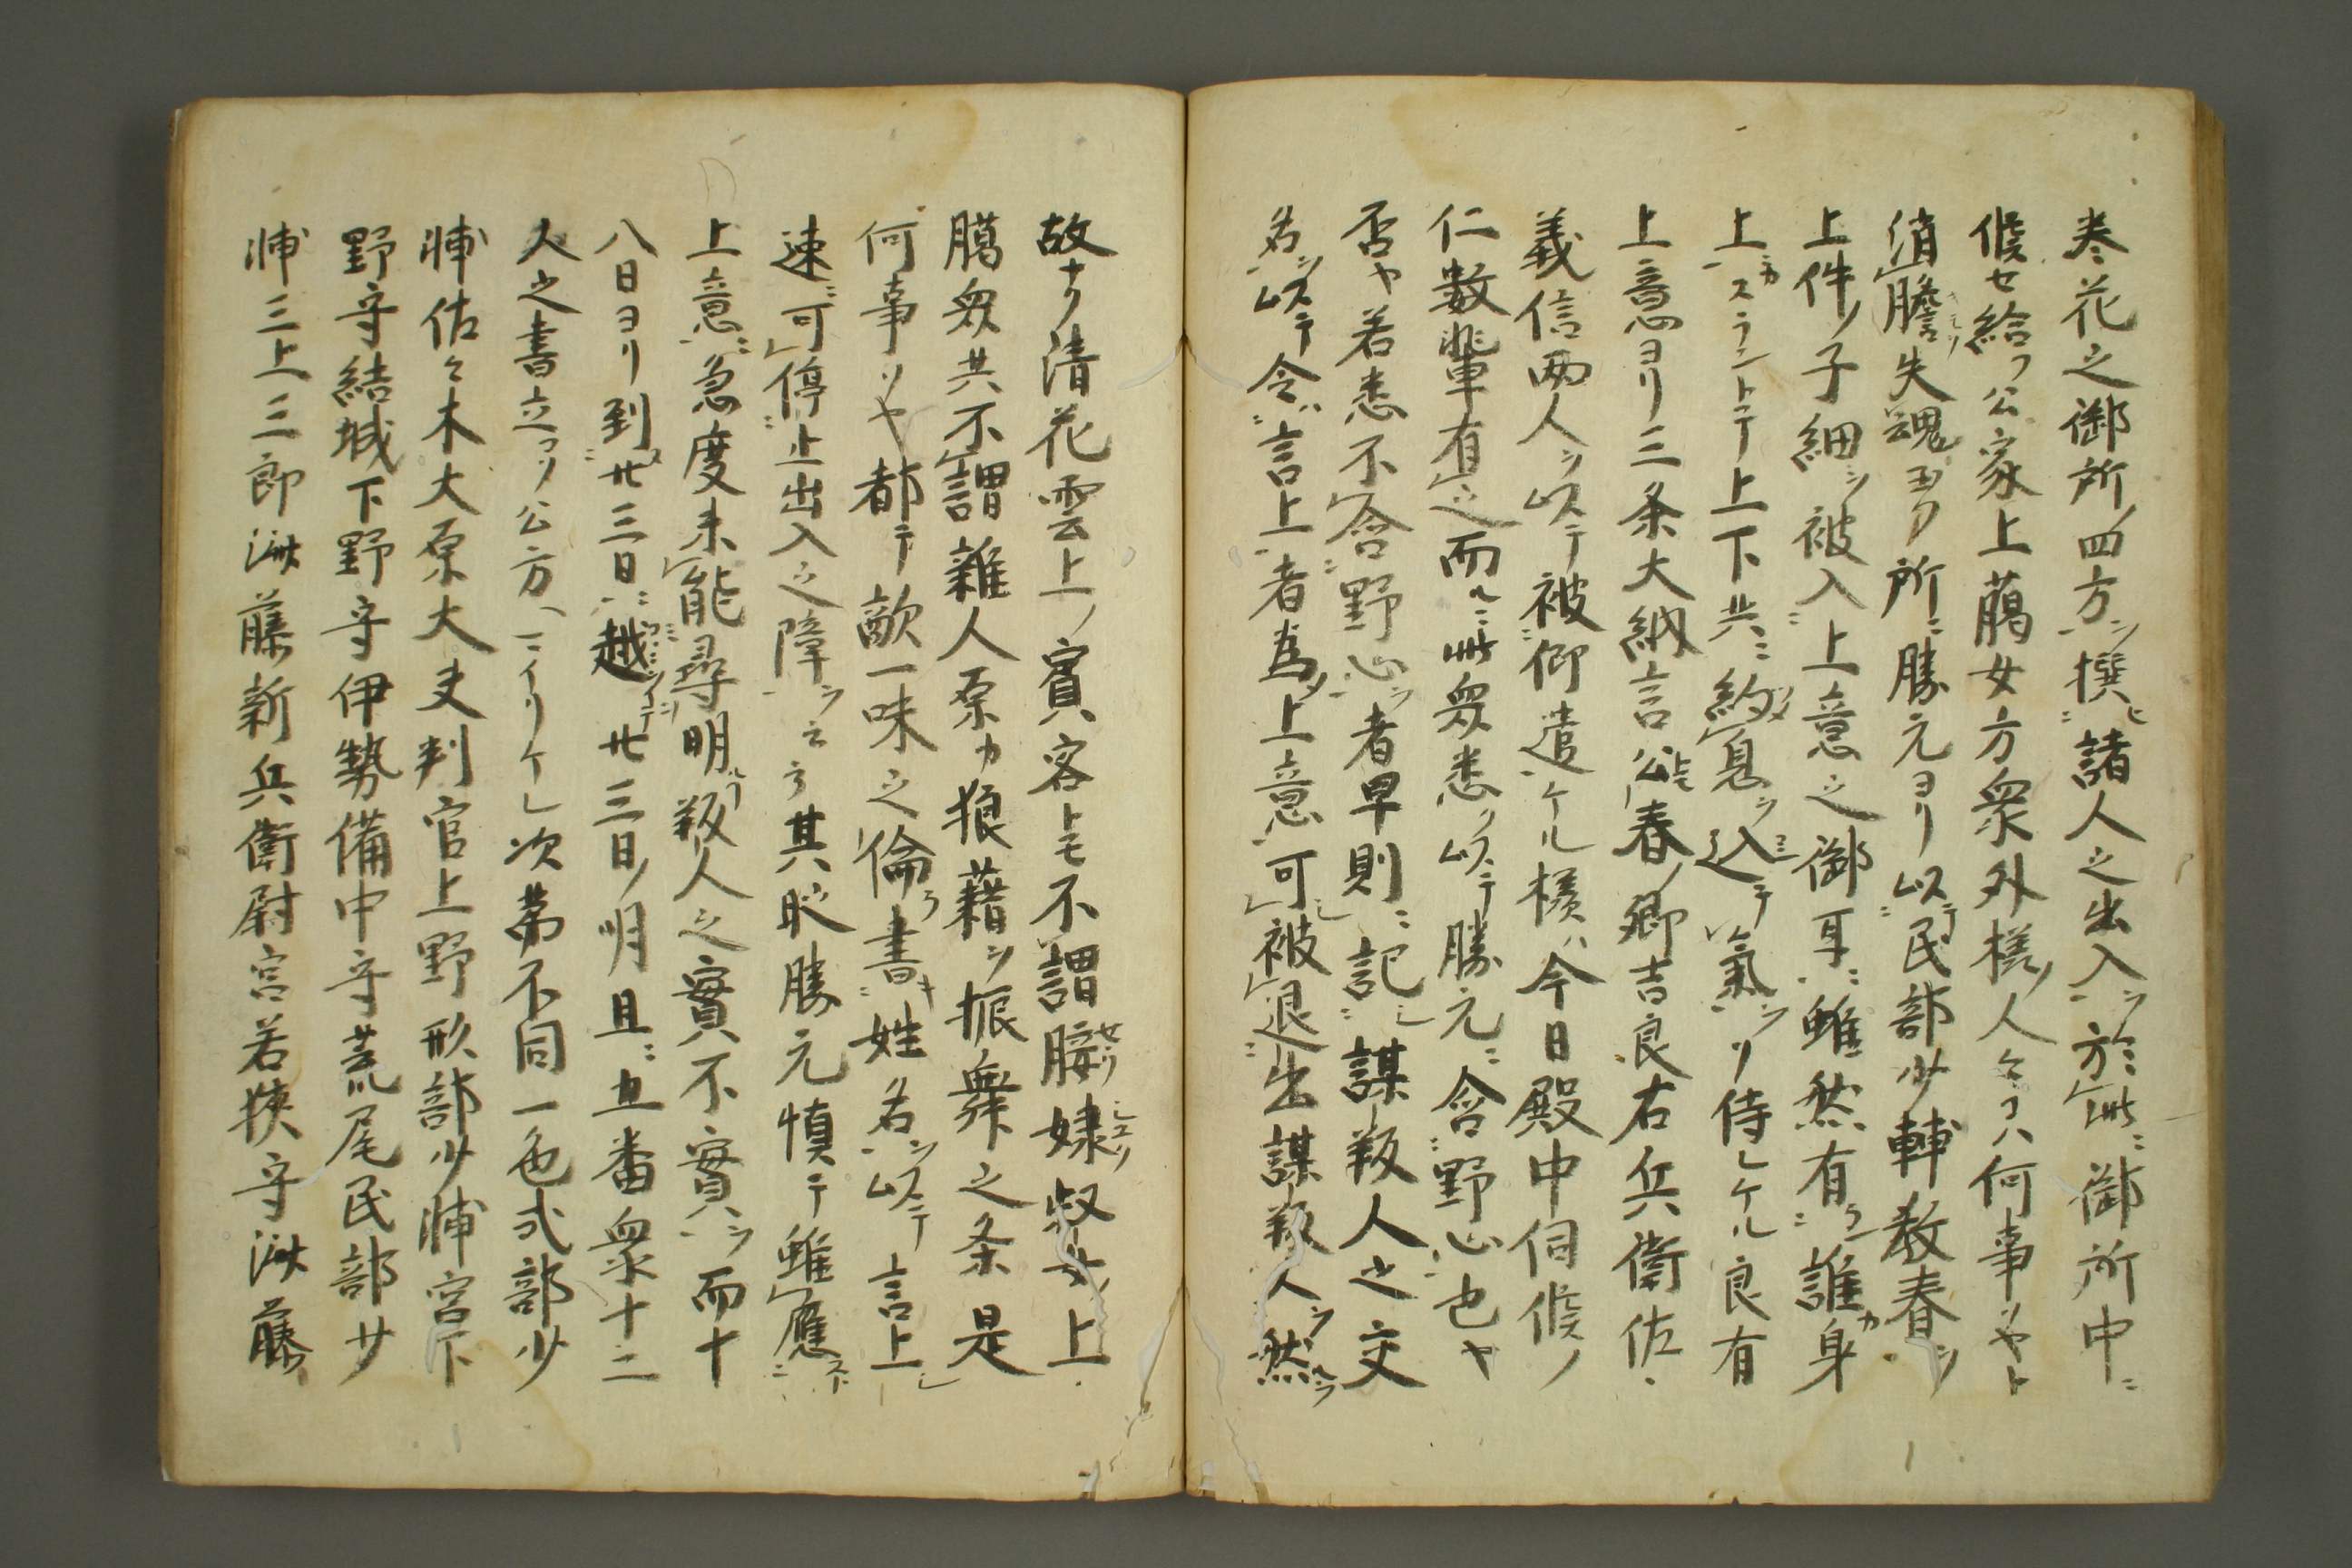 巻花之御所四方ヲ撰ヒ諸人之出入ヲ於此御所中ニ
候セ給フ公家上﨟女方衆外様ノ人々コハ何事ソヤト
消膽失魂玉フ所ニ勝元ヨリ以民部少輔教春ヲ
上件ノ子細ヲ被入上意之御耳ニ雖然有誰カ身
上ニカスラントテ上下共ニ約息ヲ込テ氣ヲ侍シケル良有
上意ヨリ三条大納言公春卿吉良右兵衛佐
義信両人ヲ以テ被仰遣ケル様ハ今日殿中伺候ノ
仁数輩有之而ルニ此衆悉ク以テ勝元ニ含野心也ヤ
否ヤ若悉不含野心ヲ者早則ニ記シ謀叛人之交
名ヲ以テ令言上者為上意可被退出謀叛人ヲ然
故ナク清花雲上ノ賓客トモ不謂 上
﨟衆共不謂雑人原カ狼藉ヲ振舞之条是
何事ソヤ都テ敵一味之倫ラ書キ姓名ヲ以テ言上シ
速ニ可停止出入之障ヲ云々其時勝元慎テ雖應スト
上意ニ急度未能尋明叛人之實不實ヲ而十
八日ヨリ到廿三日ニ越廿三日ノ明旦ニ五番衆十二
人之書立ヲソ公方ヘマイリケル次第不同一色式部少
輔佐々木大原大夫判官上野形部少輔宮下
野守結城下野守伊勢備中守荒尾民部少
輔三上三郎齋藤新兵衛尉宮若狭守齋藤